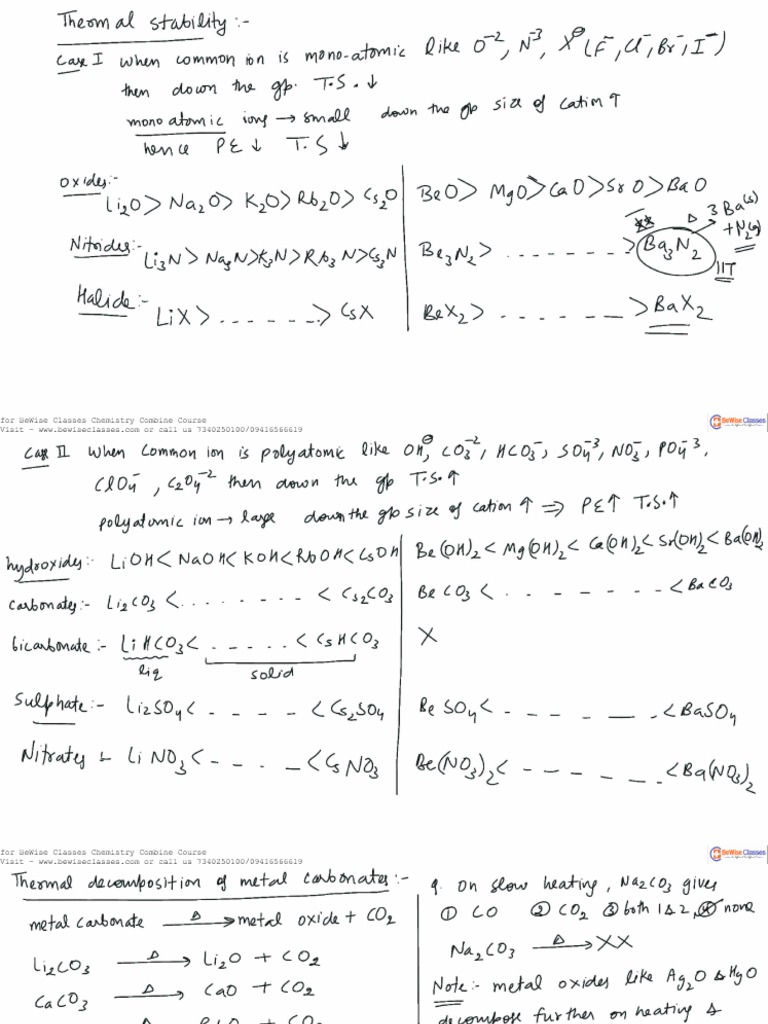 Thermal stability :-
Case I when common ion is mono-atomic like O⁻², N⁻³, X⊖ (F⁻, Cl⁻, Br⁻, I⁻)
then down the gp. T.S. ↓
mono atomic ions → small down the gp size of cation ↑
hence PE ↓ T.S ↓
Oxides:-
Li₂O > Na₂O > K₂O > Rb₂O > Cs₂O
BeO > MgO > CaO > SrO > BaO
Nitrides:-
Li₃N > Na₃N > K₃N > Rb₃N > Cs₃N
Be₃N₂ > - - - - - - - > Ba₃N₂
Δ 3 Ba(s)
+ N₂(g)
IIT
Halide:-
LiX > - - - - - - > CsX
BeX₂ > - - - - - - - > BaX₂
for BeWise Classes Chemistry Combine Course
Visit - www.bewiseclasses.com or call us 7340250100/09416566619
BeWise Classes
Case II When common ion is polyatomic like OH⊖, CO₃⁻², HCO₃⁻, SO₄⁻³, NO₃⁻, PO₄⁻³,
ClO₄⁻, C₂O₄⁻² then down the gp T.S. ↑
polyatomic ion → large down the gp size of cation ↑ ⇒ PE ↑ T.S. ↑
hydroxides:- LiOH < NaOH < KOH < RbOH < CsOH
Be(OH)₂ < Mg(OH)₂ < Ca(OH)₂ < Sr(OH)₂ < Ba(OH)₂
Carbonates:- Li₂CO₃ < - - - - - - - - < Cs₂CO₃
BeCO₃ < - - - - - - - < BaCO₃
bicarbonate:- LiHCO₃ < - - - - - < CsHCO₃
X
liq solid
Sulphate:- Li₂SO₄ < - - - - < Cs₂SO₄
BeSO₄ < - - - - - - - < BaSO₄
Nitrates :- LiNO₃ < - - - - - < CsNO₃
Be(NO₃)₂ < - - - - - - - < Ba(NO₃)₂
for BeWise Classes Chemistry Combine Course
Visit - www.bewiseclasses.com or call us 7340250100/09416566619
BeWise Classes
Thermal decomposition of metal carbonates:-
metal carbonate —Δ→ metal oxide + CO₂
Li₂CO₃ —Δ→ Li₂O + CO₂
CaCO₃ —Δ→ CaO + CO₂
q. On slow heating, Na₂CO₃ gives
① CO ② CO₂ ③ both 1 & 2, ④ none
Na₂CO₃ —Δ→ XX
Note:- metal oxides like Ag₂O & HgO
decompose further on heating &